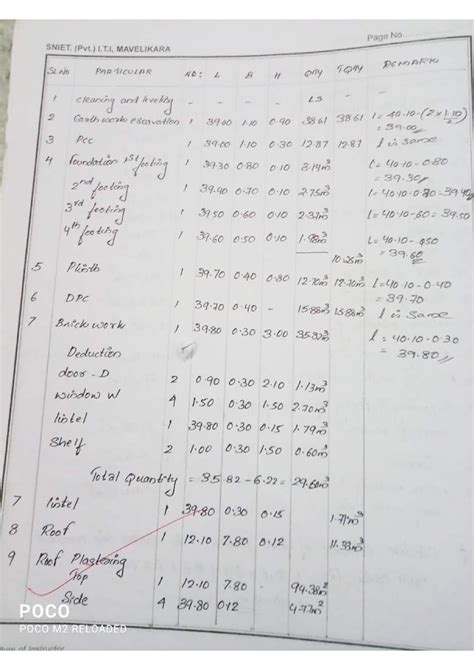 Page No.
SNIET. (Pvt.) I.T.I, MAVELIKARA
SL.No PARTICULAR NO: L B H QTY T.QTY REMARK
1 clearing and leveling - - - - LS
2 Earth work excavation 1 39.00 1.10 0.90 38.61 38.61 l = 40.10-(2x1.10/2)
= 39.00
3 PCC 1 39.00 1.10 0.30 12.87 12.87 l is same
4 Foundation 1st footing 1 39.30 0.80 0.10 3.14m3 l = 40.10-0.80
= 39.30
2nd footing 1 39.40 0.70 0.10 2.75m3 l = 40.10-0.70 = 39.40
3rd footing 1 39.50 0.60 0.10 2.37m3 l = 40.10-0.60 = 39.50
4th footing 1 39.60 0.50 0.10 1.98m3 l = 40.10-.050
= 39.60
10.25m3
5 Plinth 1 39.70 0.40 0.80 12.70m3 12.70m3 l = 40.10-0.40
= 39.70
6 DPC 1 39.70 0.40 - 15.88m 15.88m l is same
7 Brick work 1 39.80 0.30 3.00 35.82m3 l = 40.10-0.30
= 39.80
Deduction
door - D 2 0.90 0.30 2.10 1.13m3
window W 4 1.50 0.30 1.50 2.70m3
lintel 1 39.80 0.30 0.15 1.79m3
Shelf 2 1.00 0.30 1.50 0.60m3
Total Quantity = 35.82 - 6.22 = 29.60m3
7 lintel 1 39.80 0.30 0.15 1.79m3
8 Roof 1 12.10 7.80 0.12 11.33m3
9 Roof Plastering
Top 1 12.10 7.80 94.38m2
Side 4 39.80 0.12 4.77m2
POCO
POCO M2 RELOADED
of Instructor